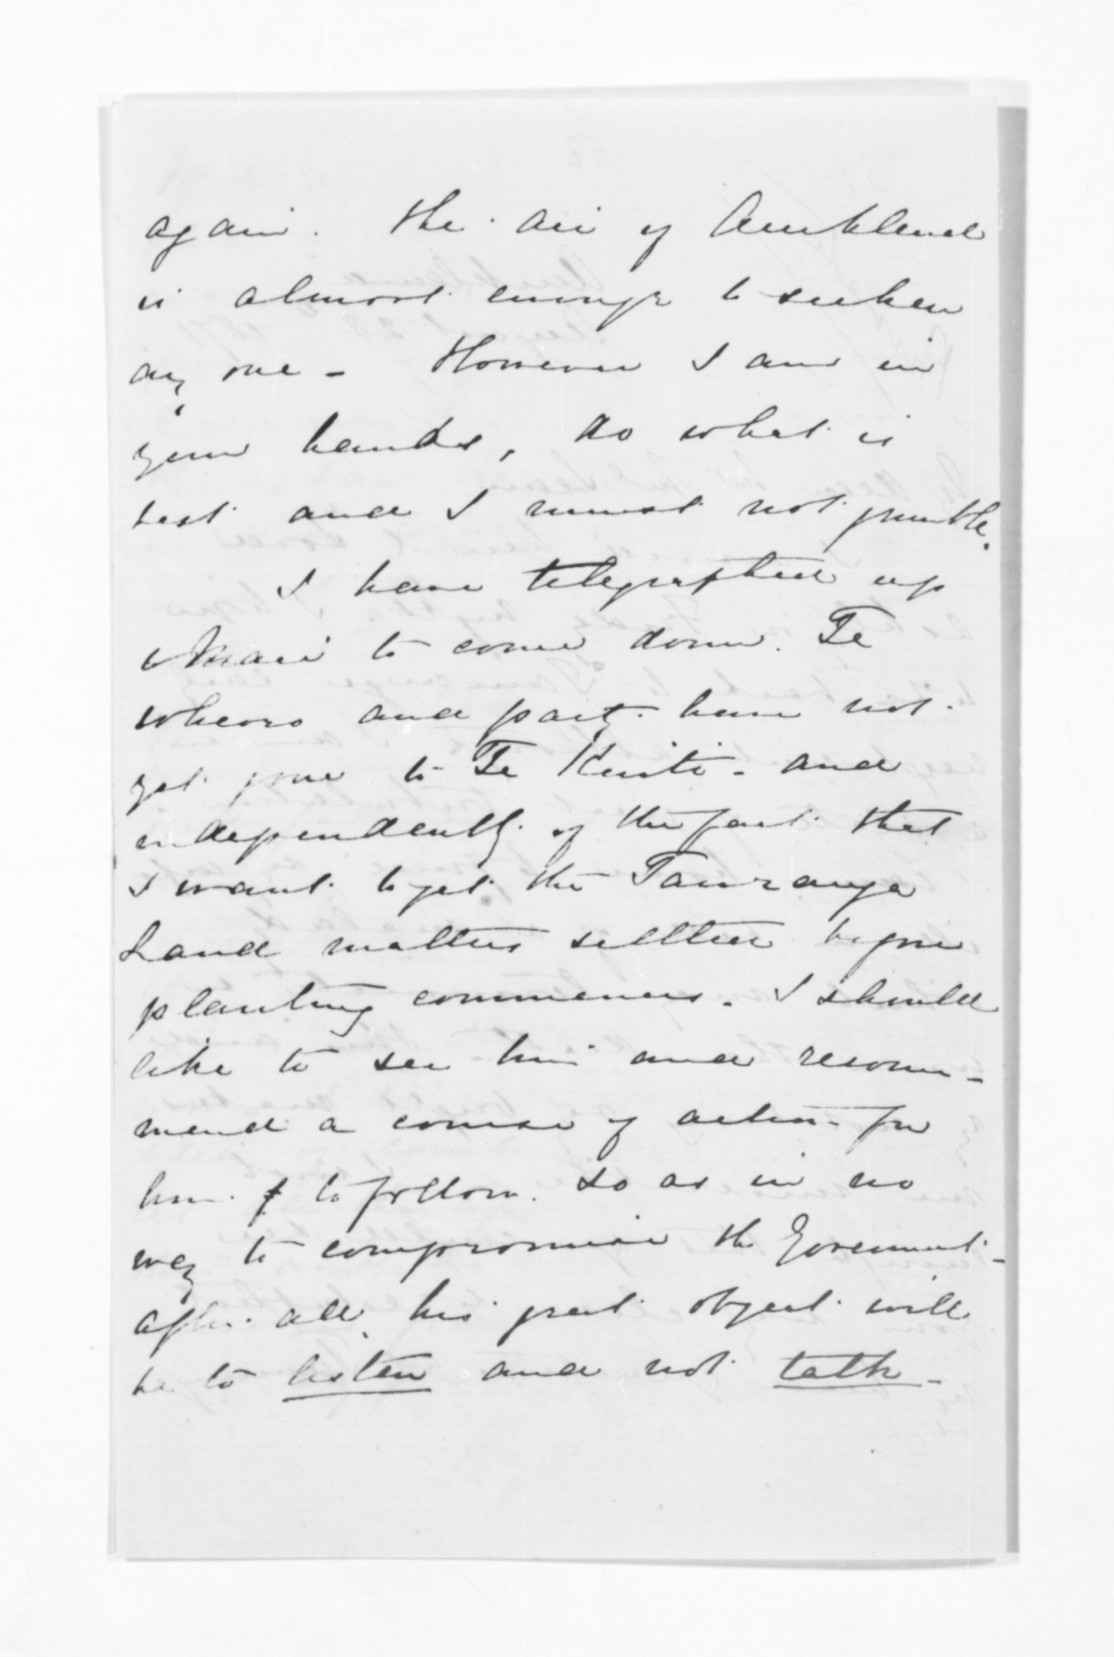 again. the air of Auckland
is almost enough to sicken
any one - However I am in
your hands, do what is
best and I must not grumble.
I have telegraphed up
to come down. Te
Wheoro and party have not
yet gone to Te Kuiti - and
independently of the fact that
I want to get the Tauranga
Land matters settled before
planting commences. I should
like to see him and recom-
mend a course of action for
him to follow. so as in no
way to compromise the Goverment -
after all, his great object will
be to listen and not talk -